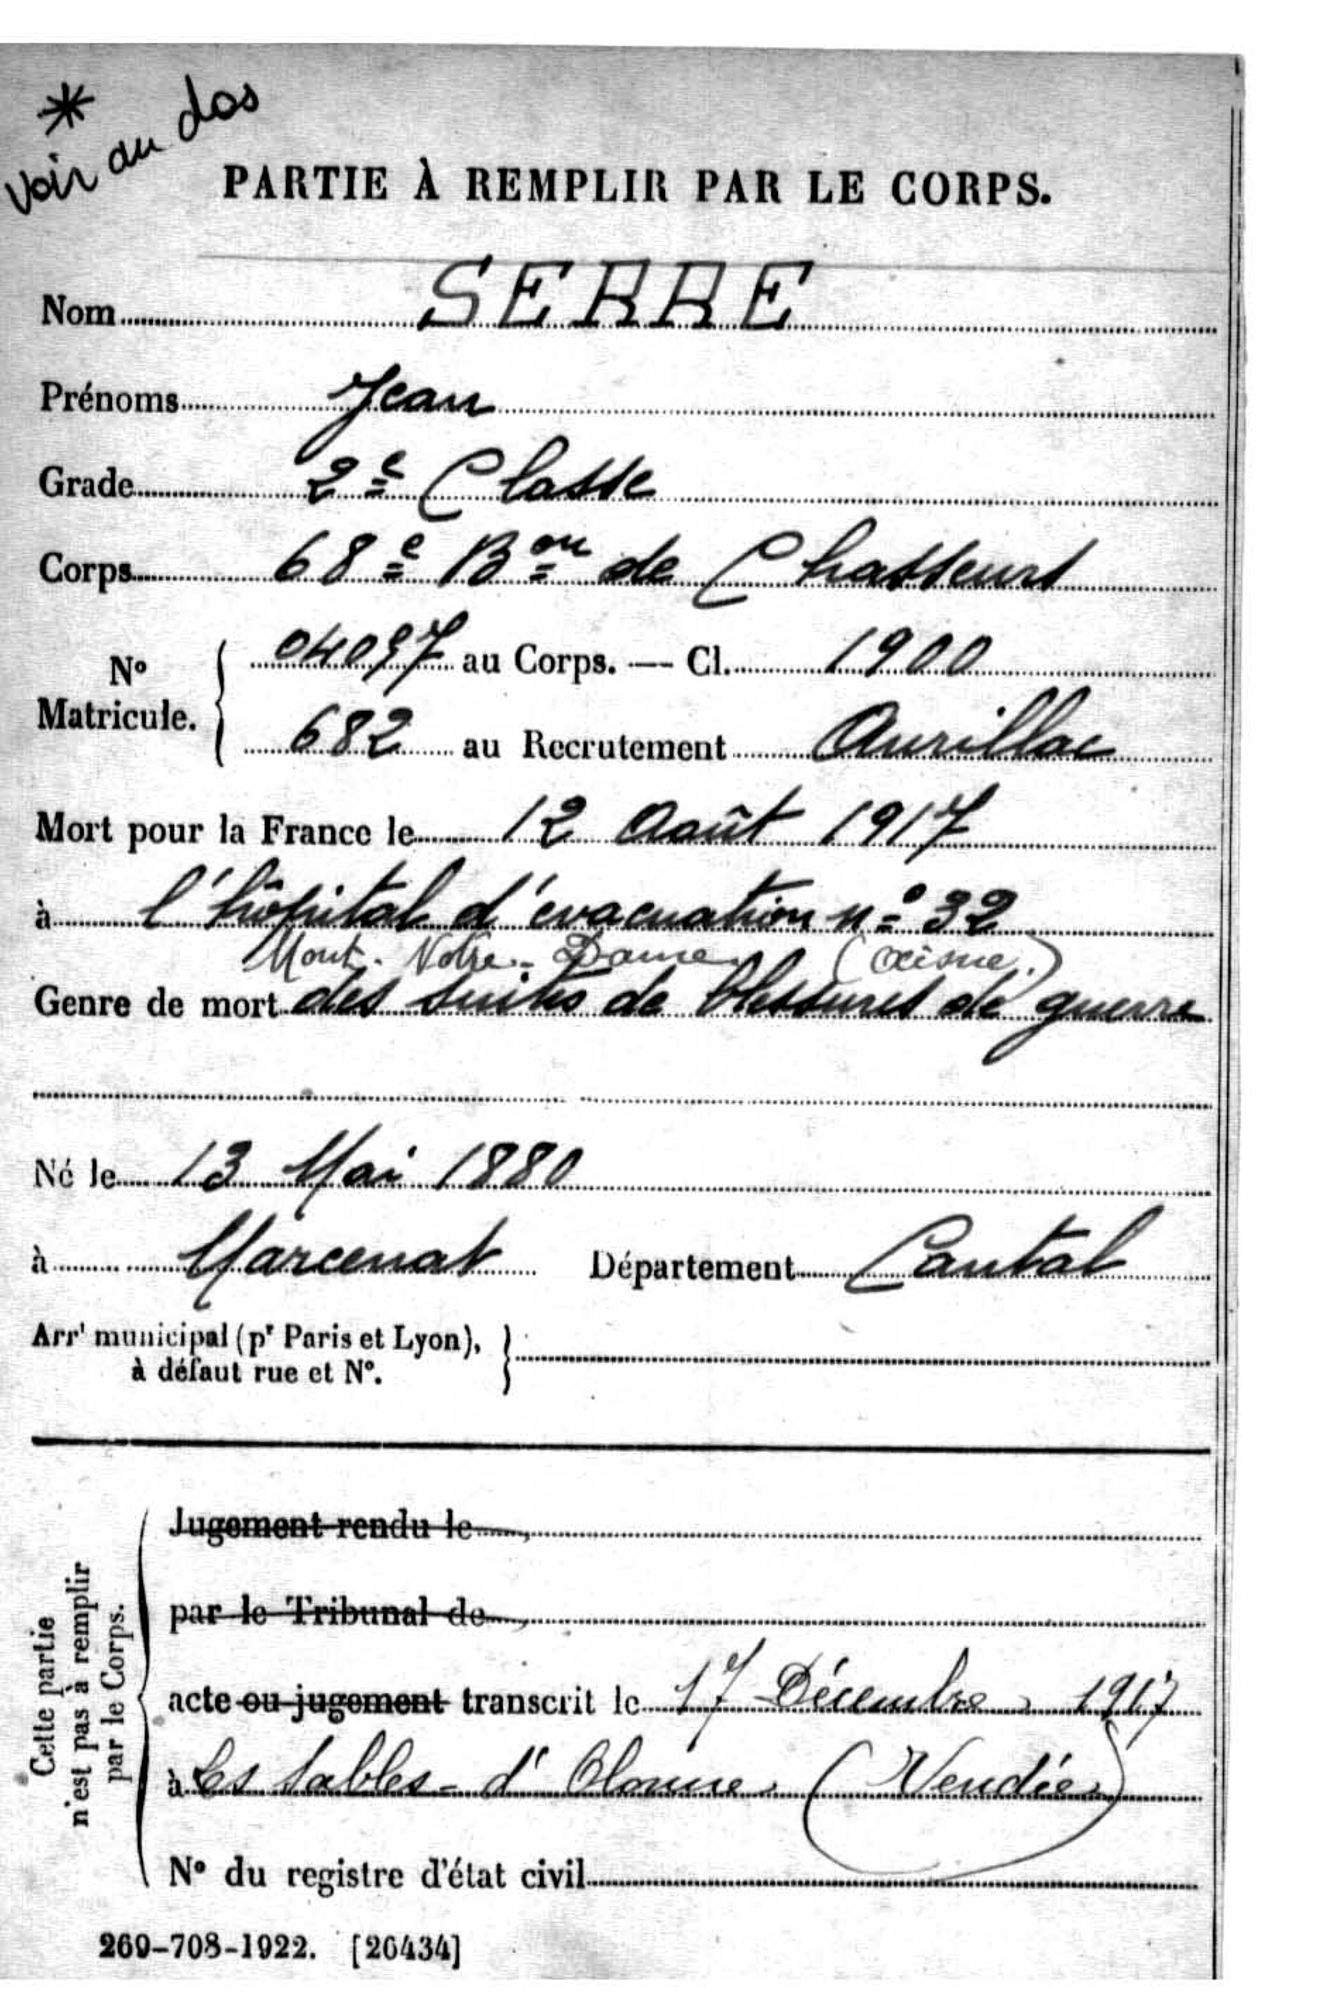 * Voir au dos
PARTIE À REMPLIR PAR LE CORPS.
Nom SERRE
Prénoms Jean
Grade 2e Classe
Corps 68e Bon de Chasseurs
No Matricule. { 04097 au Corps. — Cl. 1900
682 au Recrutement Aurillac
Mort pour la France le 12 Août 1917
à l'hôpital d'évacuation n° 32
Mont-Notre-Dame (Aisne.)
Genre de mort des suites de blessures de guerre
Né le 13 Mai 1880
à Marcenat Département Cantal
Arrt municipal (pr Paris et Lyon), }
à défaut rue et N°.
Cette partie
n'est pas à remplir
par le Corps.
Jugement rendu le
par le Tribunal de
acte ou jugement transcrit le 17 Décembre 1917
à les Sables-d'Olonne (Vendée)
N° du registre d'état civil
269-708-1922. [26434]